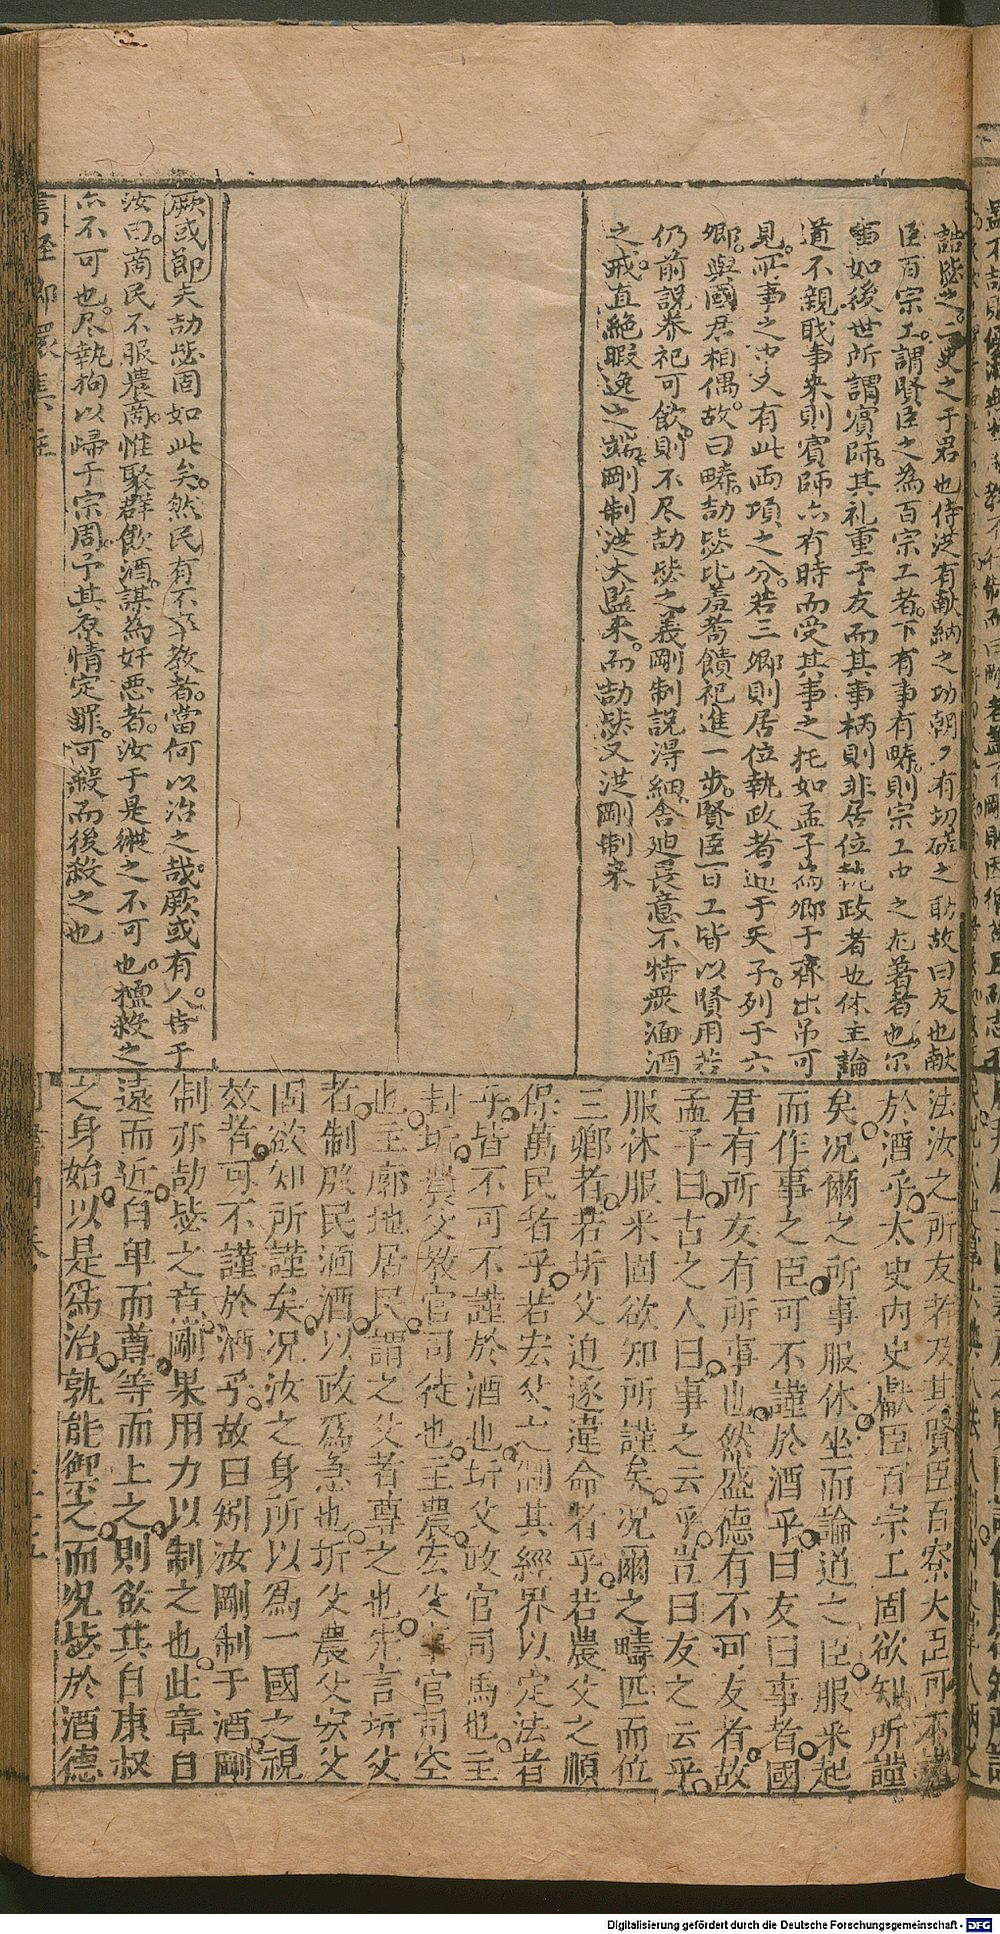 誥毖之二史之于君也侍洪有献納之功朝夕有切磋之助故曰友也献
臣百宗工謂賢臣之為百宗工者下有事有疇則宗工中之尤著者也尔
事如後世所謂賓師其礼重于友而其事柄則非居位执政者也休主論
道不親戝事来則賓師亦有時而受其事之托如孟子為卿于齊出吊可
見所事之中又有此两項之分若三卿則居位執政者近于天子列于六
卿與國君相偶故曰疇劼毖比羞耉饋祀進一步賢臣百工皆以賢用若
仍前說养祀可飲則不尽劼毖之義剛制說得細舍廸畏意不特眾湎酒
之戒直絶暇逸之端剛制洪大監来而劼毖又洪剛制来
厥或節夫劼毖固如此矣然民有不率教者當何以治之哉厥或有人告于
汝曰商民不服農商惟聚群飲酒謀為奸悪者汝于是縱之不可也擅殺之
亦不可也尽執拘以歸于宗周予其原情定罪可殺而後殺之也
法汝之所友者及其賢臣百寮大臣可不謹
於酒乎太史内史獻臣百宗工固欲知所謹
矣况爾之所事服休坐而論道之臣服采起
而作事之臣可不謹於酒乎曰友曰事者國
君有所友有所事也然盛德有不可友者故
孟子曰古之人曰事之云乎豈曰友之云乎
服休服采固欲知所謹矣况爾之疇匹而位
三卿者若圻父迫逐違命者乎若農父之順
保萬民者乎若宏父之制其經界以定法者
乎皆不可不謹於酒也圻父政官司馬也主
封圻農父教官司徒也主農宏父事官司空
也主廓地居民謂之父者尊之也先言圻父
者制殷民湎酒以政為急也圻父農父宏父
固欲知所謹矣况汝之身所以為一國之視
效者可不謹於酒乎故曰矧汝剛制于酒剛
制亦劼毖之意剛果用力以制之也此章自
遠而近自卑而尊等而上之則欲其自康叔
之身始以是爲治孰能禦之而况毖於酒德
Digitalisierung gefördert durch die Deutsche Forschungsgemeinschaft - DFG